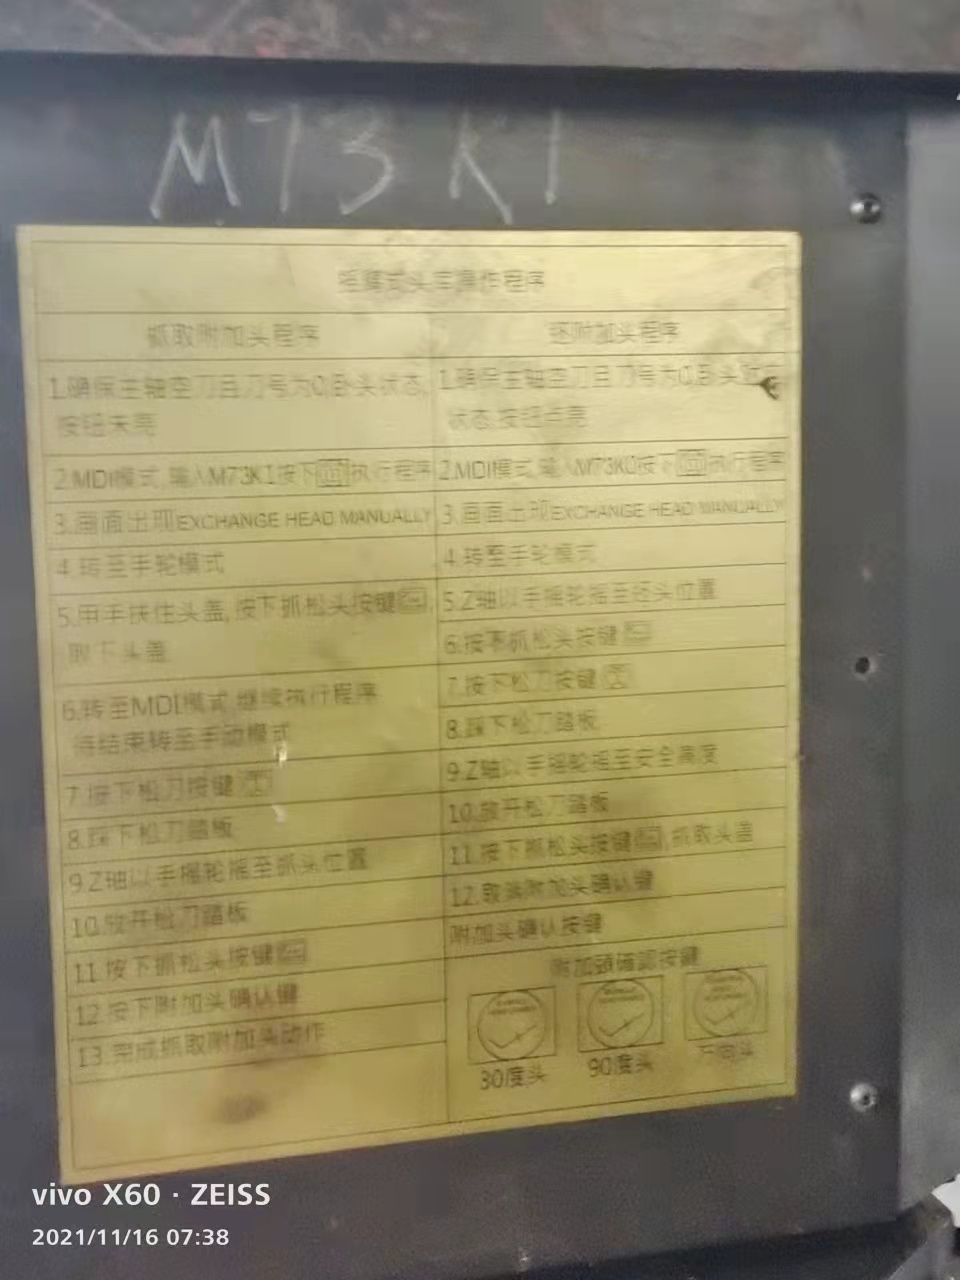 M73K1
摇臂式头库操作程序
抓取附加头程序
1.确保主轴空刀且刀号为0,卧头状态,
按钮未亮
2.MDI模式,输入M73K1按下执行程序
3.画面出现EXCHANGE HEAD MANUALLY
4.转至手轮模式
5.用手扶住头盖,按下抓松头按键,
取下头盖
6.转至MDI模式,继续执行程序
待结束转至手动模式
7.按下松刀按键
8.踩下松刀踏板
9.Z轴以手摇轮摇至抓头位置
10.放开松刀踏板
11.按下抓松头按键
12.按下附加头确认键
13.完成抓取附加头动作
还附加头程序
1.确保主轴空刀且刀号为0,卧头
状态,按钮点亮
2.MDI模式,输入M73K0按下执行程序
3.画面出现EXCHANGE HEAD MANUALLY
4.转至手轮模式
5.Z轴以手摇轮摇至还头位置
6.按下抓松头按键
7.按下松刀按键
8.踩下松刀踏板
9.Z轴以手摇轮摇至安全高度
10.放开松刀踏板
11.按下抓松头按键,抓取头盖
12.取消附加头确认键
附加头确认按键
附加頭確認按鍵
30度头
90度头
万向头
vivo X60 · ZEISS
2021/11/16 07:38